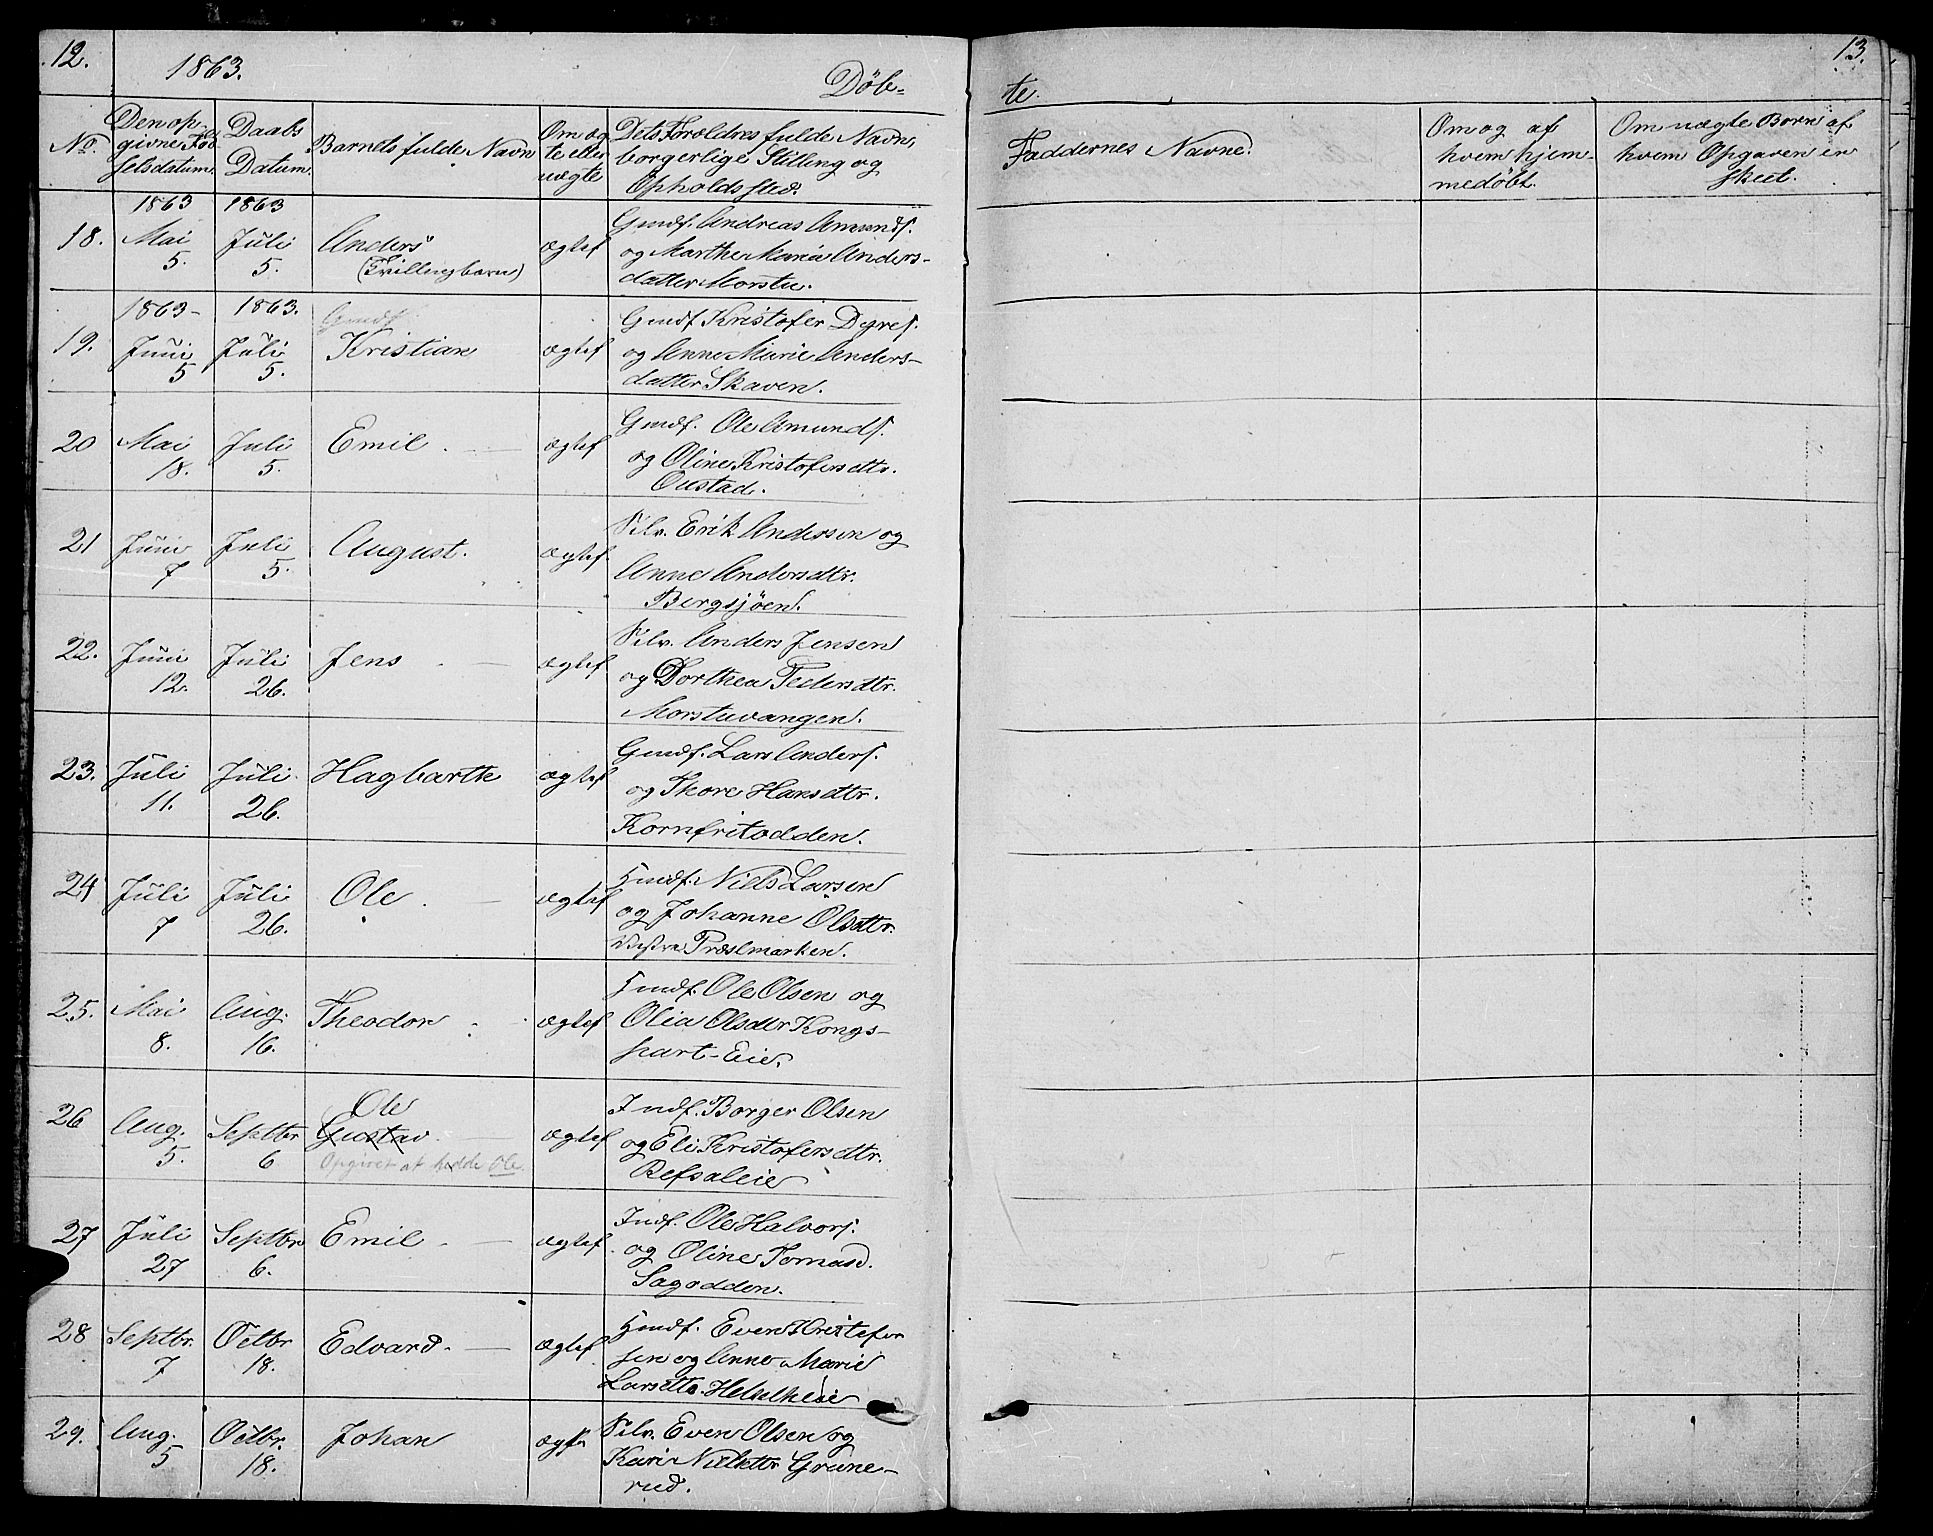 12.
1863.
Döb-
No.
Den op-
givne Fød
selsdatum.
Daabs
Datum.
Barnets fulde Navn
Om æg
te eller
uægte
Dets Foroldres fulde Navn,
borgerlige Stilling og
Opholdssted.
18.
1863
Mai
5.
1863
Juli
5.
Anders
(Tvillingbarn)
ægtef
Gmdf. Andreas Amunds.
og Marthe Maria Anders-
datter Morstu.
19.
1863-
Juni
5
1863.
Juli
5.
Gmdf
Kristian
ægtef
Gmdf Kristofer Dyres.
og Anne Marie Anders-
datter Skaven.
20
Mai
18.
Juli
5.
Emil. —
ægtef
Gmdf. Ole Amunds.
og Oline Kristofersdtr.
Oustad.
21
Juni
7
Juli
5.
August.
ægtef.
Selv. Erik Andersen og
Anne Andersdtr.
Bergsjöen.
22.
Juni
12.
Juli
26.
Jens. —
ægtef
Selv. Anders Jensen
og Dorthea Pedersdtr.
Morstuvangen.
23.
Juli
11.
Juli
26.
Hagbarth
ægtef
Gmdf. Lars Anders.
og Thore Hansdtr.
Kornfritodden.
24
Juli
7
Juli
26.
Ole. —
ægtef
Hmdf. Niels Larsen
og Johanne Olsdtr.
Vestre Præstmarken.
25.
Mai
8.
Aug.
16.
Theodor
ægtef
Hmdf. Ole Olsen og
Olia Olsdtr Kongs-
part-Eie.
26
Aug.
5.
Septbr
6
Ole
Gustav. —
Opgivet at hedde Ole.
ægtef
Indf. Borger Olsen
og Eli Kristofersdtr.
Refsaleie
27
Juli
27
Septbr
6.
Emil. —
ægtef.
Indf. Ole Halvors.
og Oline Tomasd.
Sagodden.
28
Septbr.
7
Octbr
18.
Edvard. —
ægtef
Hmdf. Even Kristofer
sen og Anne Marie
Larsdtr.
29.
Aug.
5
Octbr.
18.
Johan
Selv. Even Olsen og
Kari Nielsdtr Grüne-
rud.
13.
te.
Faddernes Navne.
Om og af
hvem hjem-
medöbt.
Om uægte Born af
hvem Opgaven er
skeet.